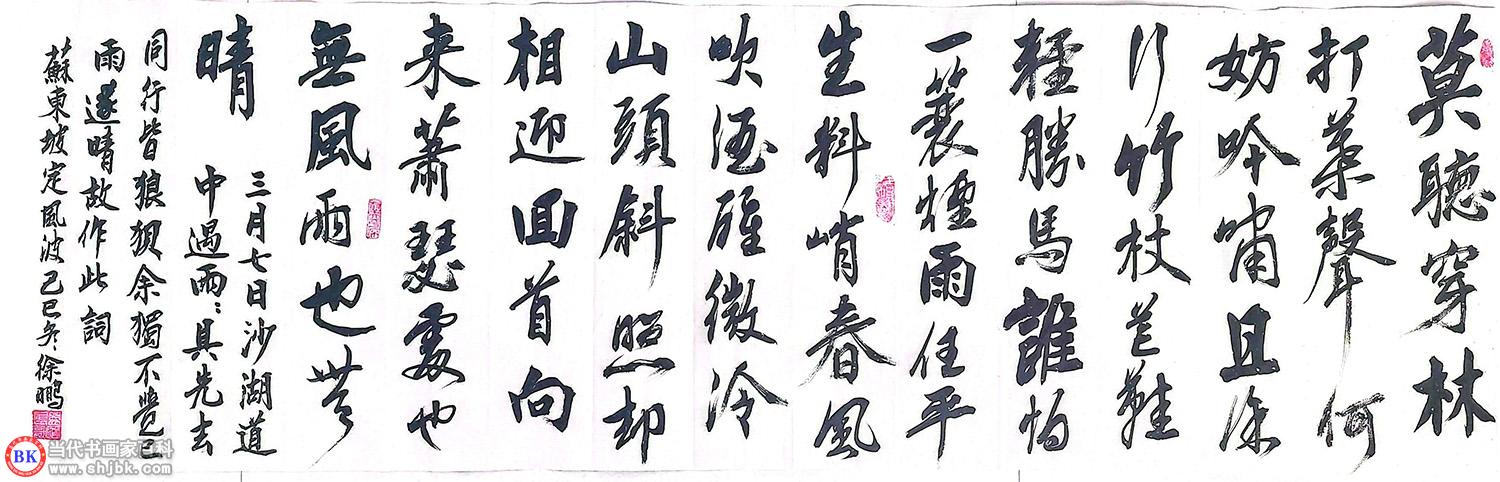 莫聽穿林
打葉聲何
妨吟嘯且徐
行竹杖芒鞋
輕勝馬誰怕
一蓑煙雨任平
生料峭春風
吹酒醒微冷
山頭斜照却
相迎回首向
来蕭瑟處也
無風雨也無
晴
三月七日沙湖道
中遇雨:具先去
同行皆狼狽余獨不覺已
雨遂晴故作此詞
蘇東坡定風波己巳冬徐鹏
BK
当代书画家百科
www.shjbk.com